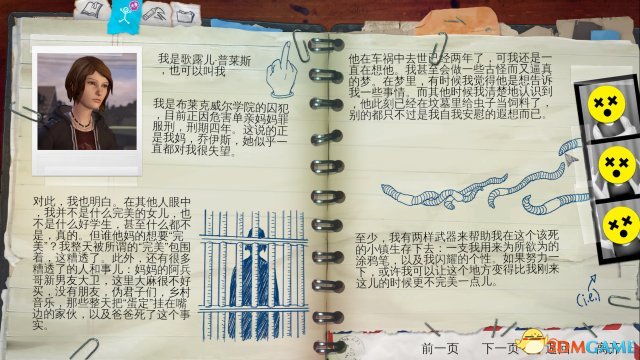 我是歌露儿·普莱斯
，也可以叫我
我是布莱克威尔学院的囚犯
，目前正因危害单亲妈妈罪
服刑，刑期四年。这说的正
是我妈，乔伊斯，她似乎一
直都对我很失望。
对此，我也明白。在其他人眼中
，我并不是什么完美的女儿，也
不是什么好学生，甚至什么都不
是，真的。但谁他妈的想要“完
美”？我整天被所谓的“完美”包围
着，这糟透了。此外，还有很多
糟透了的人和事儿：妈妈的阿兵
哥新男友大卫，这里大麻很不好
买，没有朋友，伪君子们，乡村
音乐，那些整天把“蛋定”挂在嘴
边的家伙，以及爸爸死了这个事
实。
他在车祸中去世已经两年了，可我还是一
直在想他。我甚至会做一些古怪而又逼真
的梦。在梦里，有时候我觉得他是想告诉
我一些事情。而其他时候我清楚地认识到
，他此刻已经在坟墓里给虫子当饲料了，
别的都只不过是我自我安慰的遐想而已。
至少，我有两样武器来帮助我在这个该死
的小镇生存下去：一支我用来为所欲为的
涂鸦笔，以及我闪耀的个性。如果努力一
下，或许我可以让这个地方变得比我刚来
这儿的时候更不完美一点儿。
前一页
下一页
返回
离开
3DMGAME